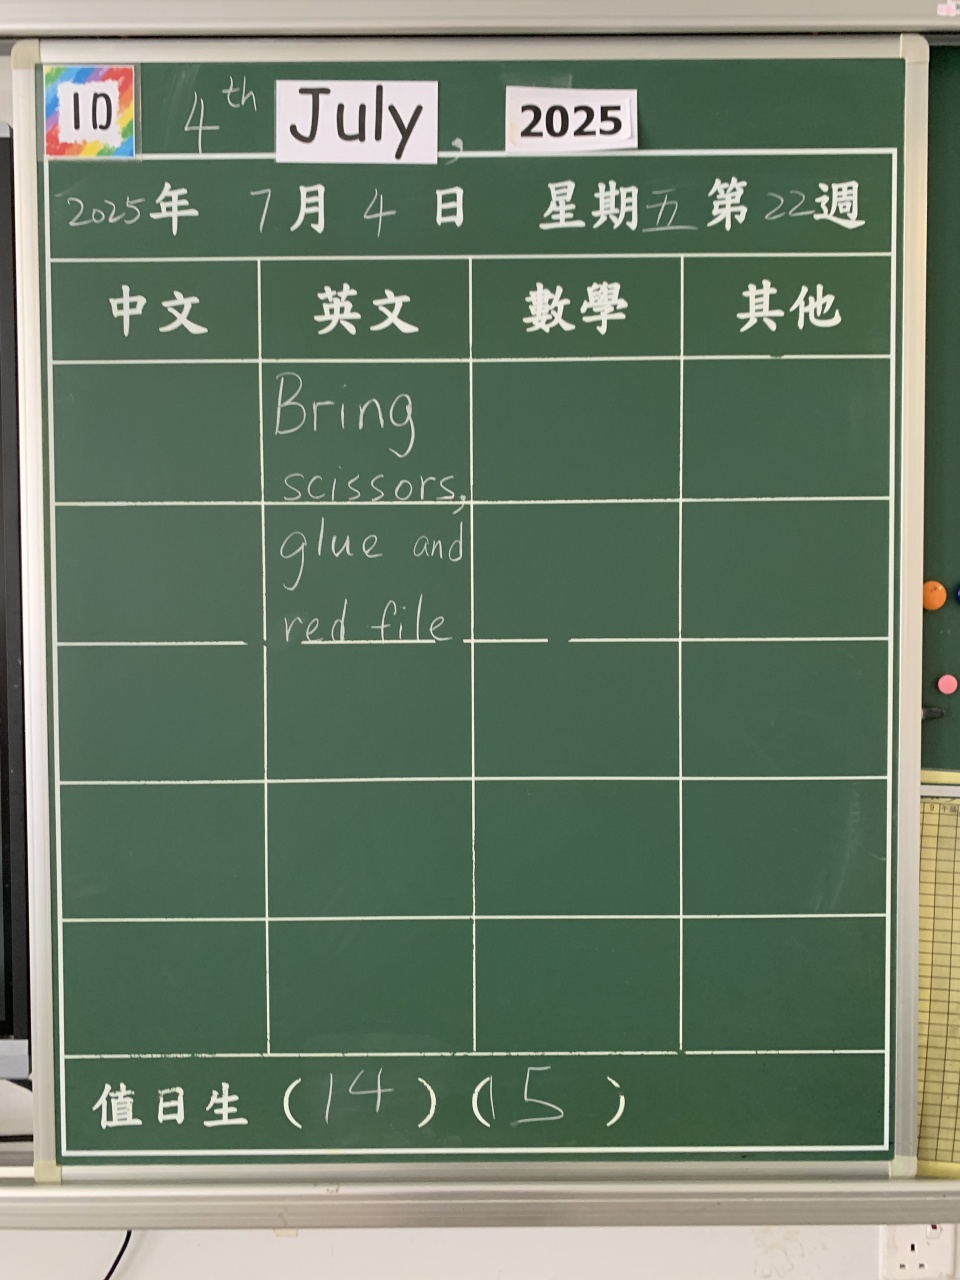 1D 4th July, 2025
2025年 7月 4日 星期五 第22週
中文 英文 數學 其他
Bring
scissors,
glue and
red file
值日生 (14) (15)